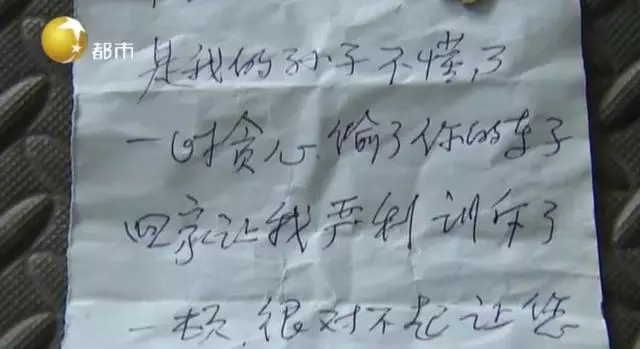 都市
是我的孙子不懂了
一时贪心.偷了你的车子
回家让我严利训斥了
一顿.很对不起让您